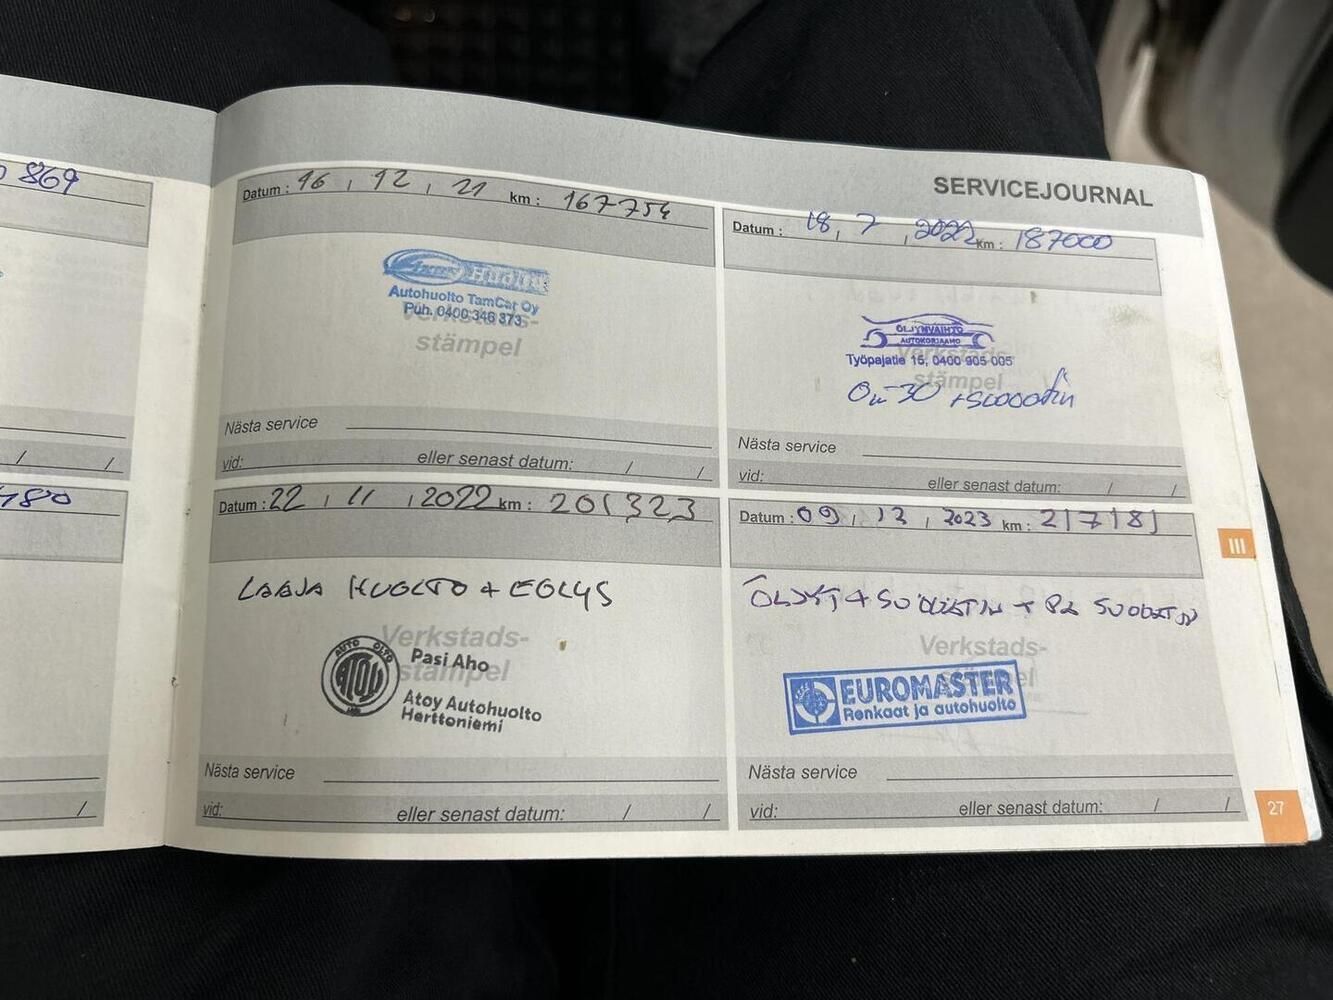 869
480
SERVICEJOURNAL
Datum: 16 / 12 / 21 km: 167754
Autohuolto TamCar Oy
Puh. 0400 346 373
Verkstads-
stämpel
Nästa service
vid: eller senast datum: / /
Datum: 18, 7, 2022 Km: 187000
ÖLJYNVAIHTO
AUTOKORJAAMO
Verkstads-
Työpajatie 15, 0400 905 005
stämpel
0w-30 + suodatin
Nästa service
vid: eller senast datum: / /
Datum: 22 / 11 / 2022 km: 201323
LAAJA HUOLTO + EGLYS
Verkstads-
stämpel
AUTO OLTO
ATOY
Pasi Aho
Atoy Autohuolto
Herttoniemi
Nästa service
vid: eller senast datum: / /
Datum: 09 / 12 / 2023 km: 217181
ÖLJYT + SUODATIN + PA SUODATIN
Verkstads-
EUROMASTER
Renkaat ja autohuolto
Nästa service
vid: eller senast datum: / /
III
27